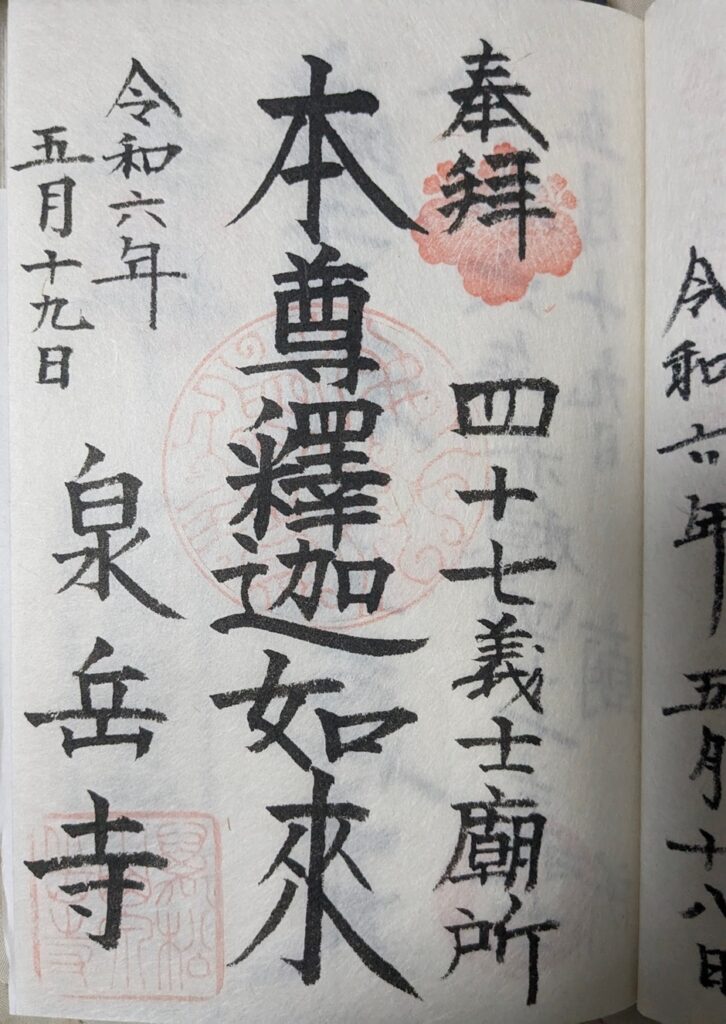 令和六年五月十八日
奉拝
四十七義士廟所
本尊釋迦如來
令和六年
五月十九日
泉岳寺